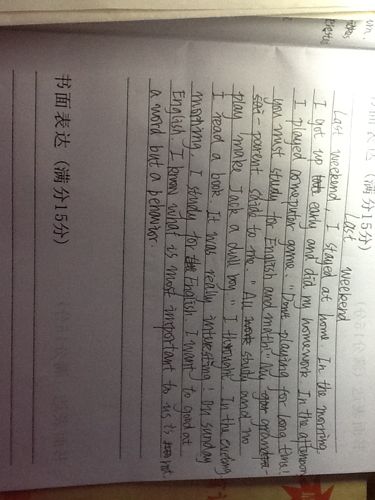 书面表达（满分15分）
Last weekend
Last weekend, I stayed at home. In the morning
I got up early and did my homework. In the afternoon
I played computer game. "Done playing for long time!
you must study for English and math!" My grand-
parent said to me. "All work study and no
play make Jack a dull boy." I In the evening
I read a book. It was really interesting! On sunday
morning, I study for English. I want to good at
English. I know what is most important to us is not
a word but a behavior.
书面表达（满分15分）